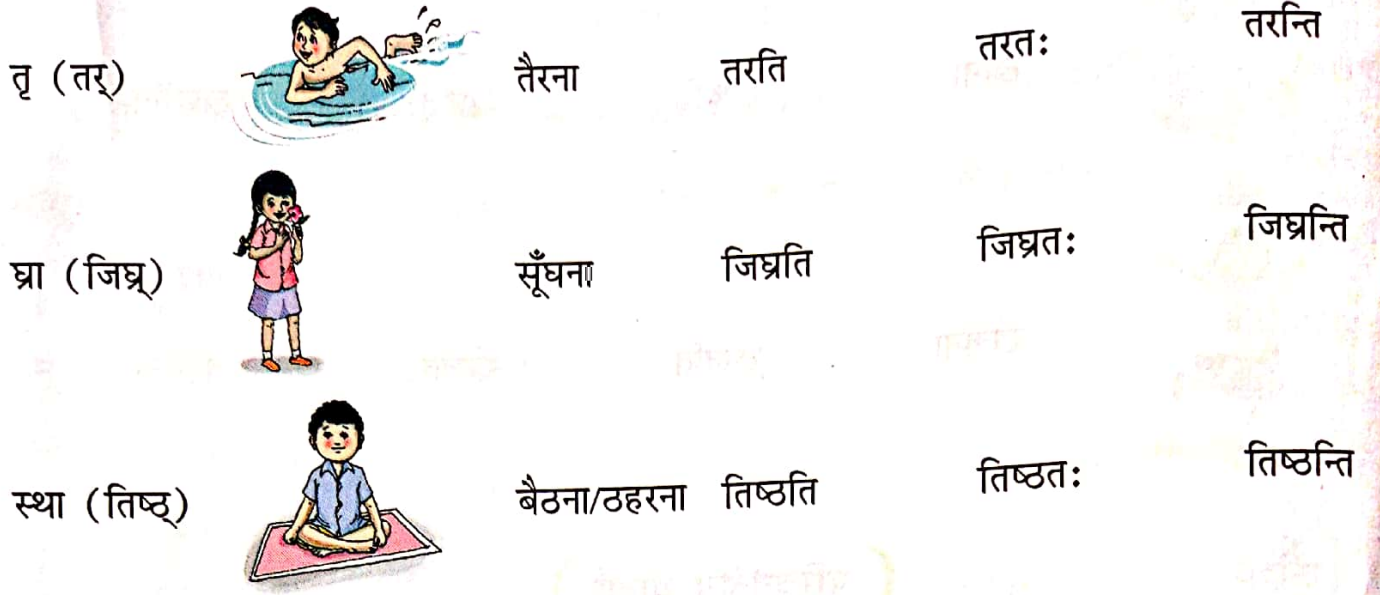 तृ (तर्) तैरना तरति तरतः तरन्ति
घ्रा (जिघ्र्) सूँघना जिघ्रति जिघ्रतः जिघ्रन्ति
स्था (तिष्ठ्) बैठना/ठहरना तिष्ठति तिष्ठतः तिष्ठन्ति